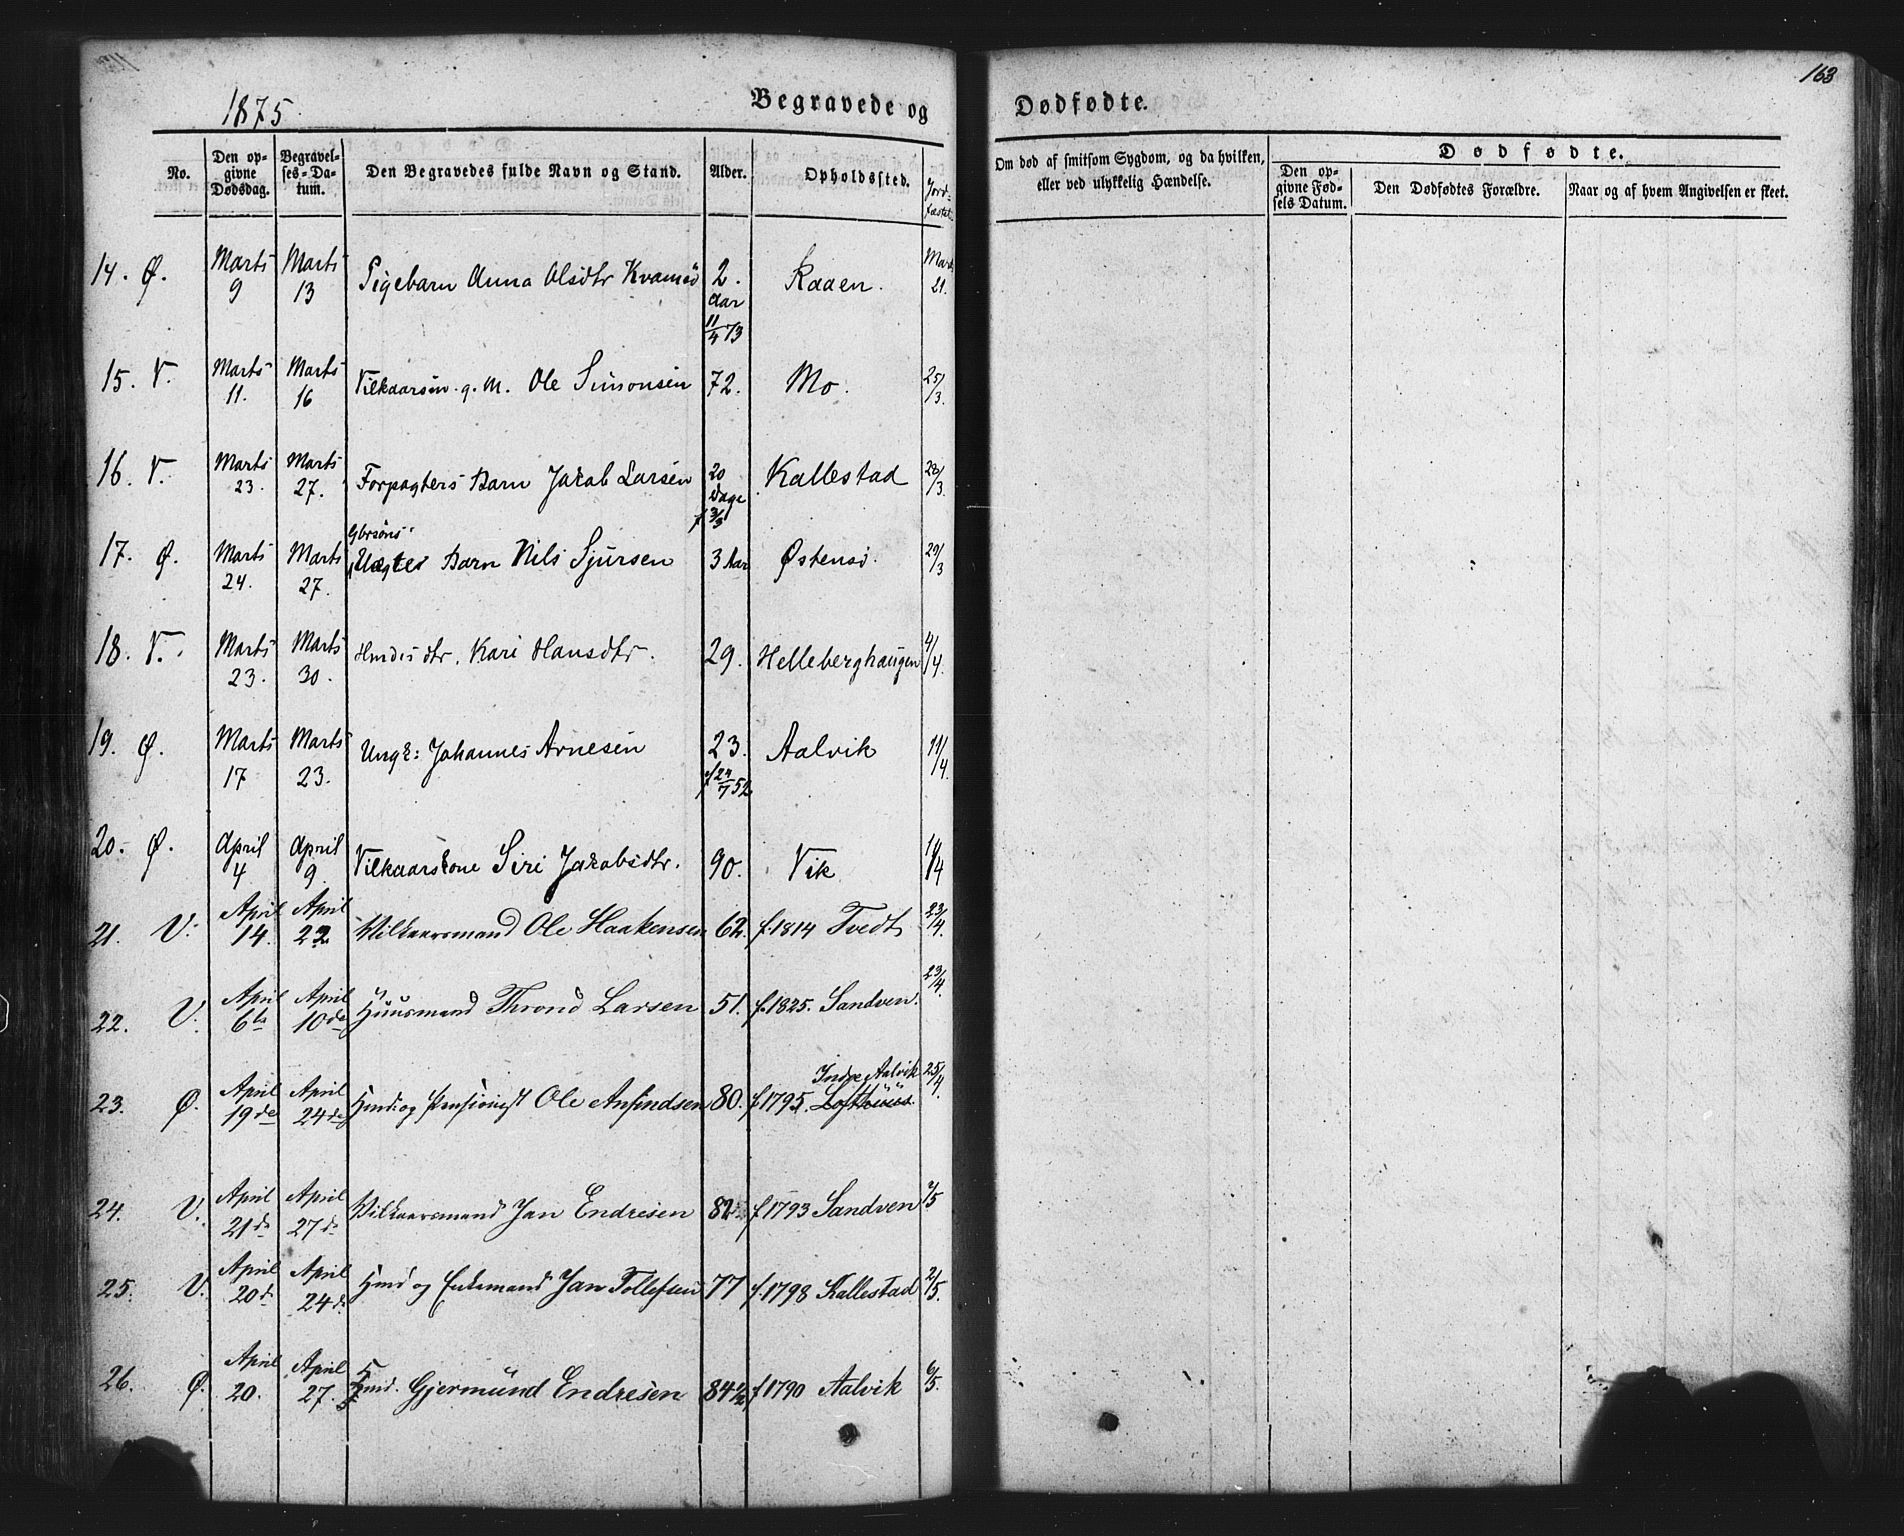 163
1875.
Begravede og Dødfødte.
No.
Den opgivne Dødsdag.
Begravelses-Datum.
Den Begravedes fulde Navn og Stand.
Alder.
Opholdssted.
Jordfæstet
Om død af smitsom Sygdom, og da hvilken, eller ved ulykkelig Hændelse.
Dødfødte.
Den opgivne Fødsels Datum.
Den Dødfødtes Forældre.
Naar og af hvem Angivelsen er skeet.
14. Ø. Marts 9 Marts 13 Pigebarn Anna Olsdtr Kvamsö 2. Aar 11/4 73 Kaaen. Marts 21.
15. V. Marts 11. Marts 16 Vilkaarsm. g. M. Ole Simonsen 72. Mo. 25/3.
16. V. Marts 23. Marts 27. Forpagters Barn Jakob Larsen 20 Dage f 3/3 Kallestad 28/3.
17. Ø. Marts 24. Marts 27. Gbrsöns Uægtes Barn Nils Sjursen 3 Aar Østensö. 29/3
18. V. Marts 23. Marts 30. Hmds dtr. Kari Hansdtr. 29. Helleberghaugen 4/4.
19. Ø. Marts 17 Marts 23. Ungk: Johannes Arnesen 23. f 24/7 52 Aalvik 11/4.
20. Ø. April 4 April 9 Vilkaarskone Siri Jakobsdtr. 90. Vik 11/4
21. V. April 14. April 22 Vilkaarsmand Ole Haakensen 62. f. 1814 Tvedt 23/4.
22. V. April 6te April 10de Huusmand Thrond Larsen 51. f. 1825. Sandven. 23/4.
23. Ø. April 19de April 24de Hmd. og Pensionist Ole Anfindsen 80. f 1795. Indre Aalvik Lofthuus. 25/4.
24. V. April 21de April 27de Vilkaarsmand Jan Endresen 82 f 1793 Sandven 2/5
25. V. April 20de April 24de Hmd og Enkemand Jan Tollefsen 77 f. 1798 Kallestad 2/5.
26. Ø. April 20. April 27. Hmd. Gjermund Endresen 84 1/2 f 1790 Aalvik 6/5.